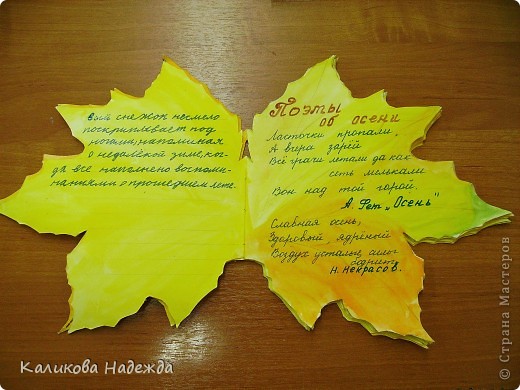 вый снежок несмело
поскрипывает под
ногами, напоминая
о недалёкой зиме, ког-
да всё наполнено воспоми-
наниями о прошедшем лете.
Поэты
об осени
Ласточки пропали,
А вчера зарёй
Всё грачи летали да как
сеть мелькали
Вон над той горой.
А. Фет „Осень"
Славная осень,
Здоровый, ядрёный
Воздух усталые силы
бодрит
Н. Некрасов.
Каликова Надежда
© Страна Мастеров